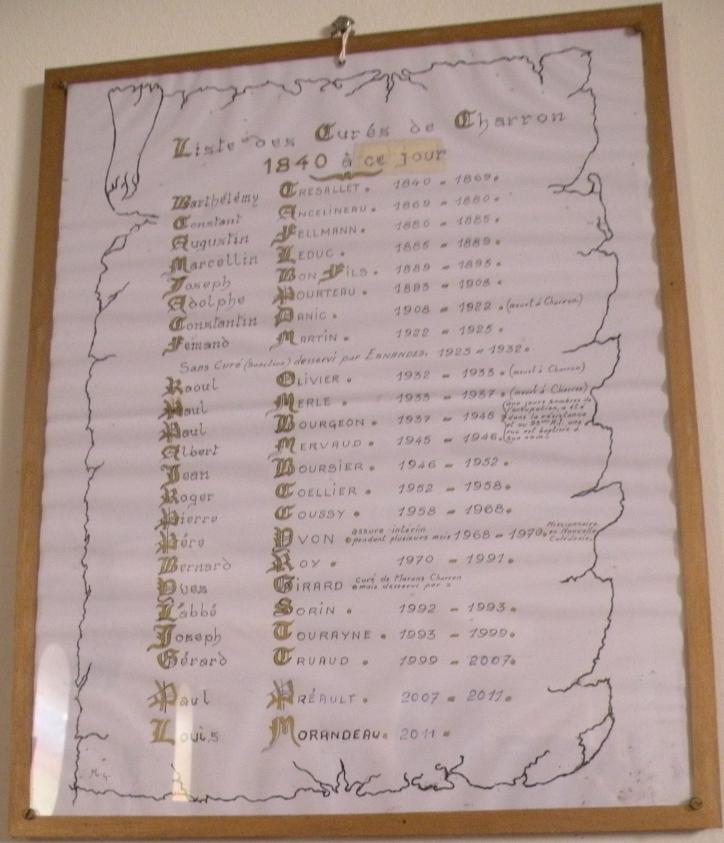 Liste des Curés de Charron
1840 à ce jour
Barthélémy TRESALLET. 1840 - 1869.
Constant ANCELINEAU. 1869 - 1880.
Augustin FELLMANN. 1880 - 1885.
Marcellin LEDUC. 1885 - 1889.
Joseph BON FILS. 1889 - 1893.
Adolphe POURTEAU. 1893 - 1908.
Constantin DANIC. 1908 - 1922. (meurt à Charron)
Fernand MARTIN. 1922 - 1923.
Sans Curé desservi par ESNANDES. 1923 - 1932.
Raoul OLIVIER. 1932 - 1933. (meurt à Charron)
Paul MERLE. 1933 - 1937. (meurt à Charron)
Paul BOURGEON. 1937 - 1945
Albert MERVAUD. 1945 - 1946.
Jean BOURSIER. 1946 - 1952.
Roger COELLIER. 1952 - 1958.
Pierre COUSSY. 1958 - 1968.
Père YVON assure intérim pendant plusieurs mois 1968 - 1970. Missionnaire en Nouvelle Calédonie.
Bernard ROY. 1970 - 1991.
Yves GIRARD Curé de Marans Charron mais desservi par
L'abbé SORIN. 1992 - 1993.
Joseph TOURAYNE. 1993 - 1999.
Gérard TRUAUD. 1999 - 2007.
Paul PRÉAULT. 2007 - 2011.
Louis MORANDEAU. 2011.